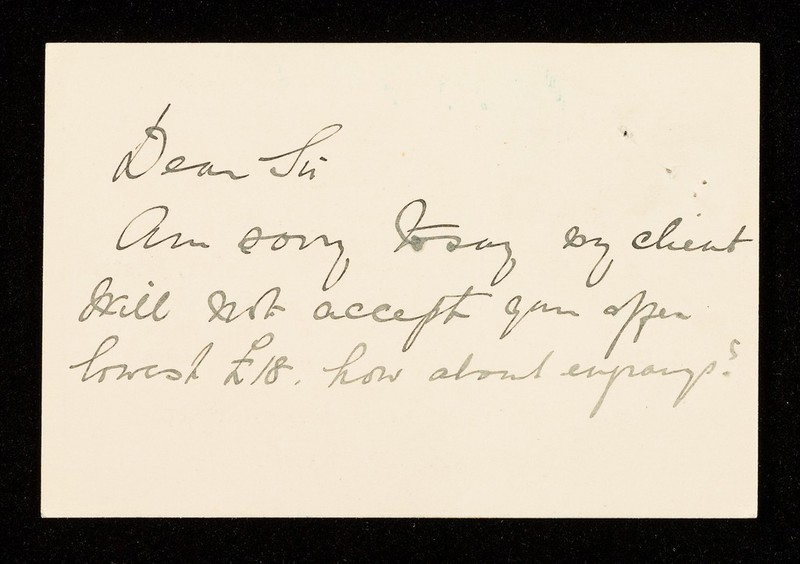 Dear Sir
Am sorry to say my client
will not accept your offer
lowest £18. how about engravgs.